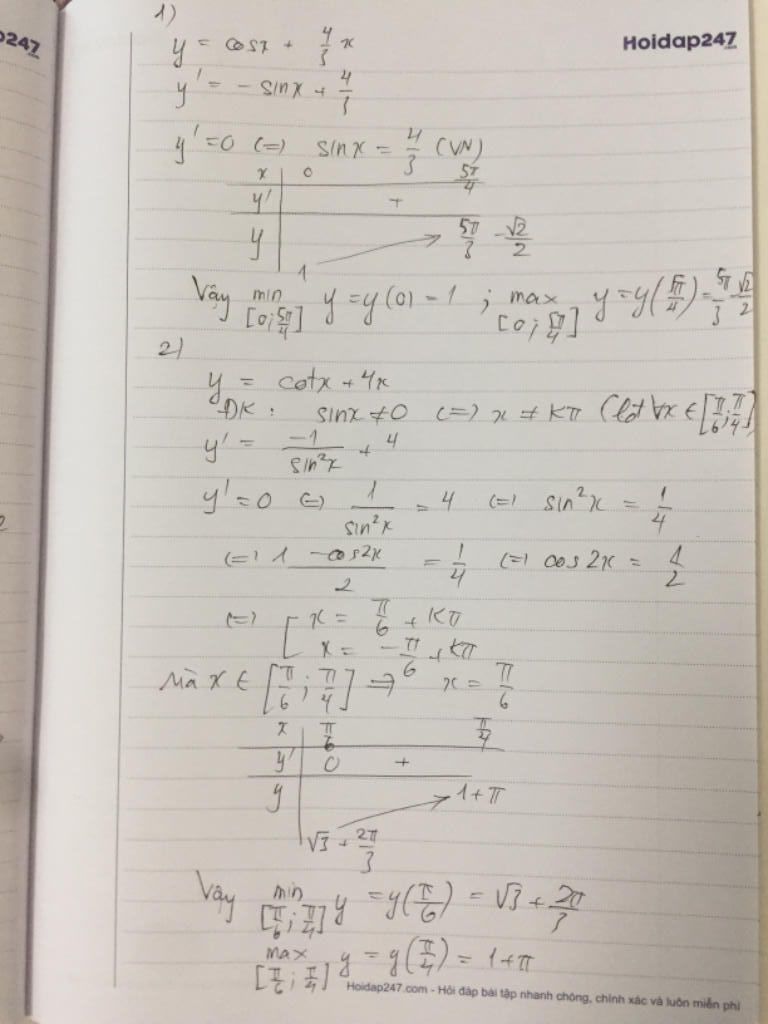 247
Hoidap247
1)
y = cosx + 4/3 x
y' = - sinx + 4/3
y' = 0 (=) sinx = 4/3 (VN)
x 0 5π/4
y' +
y 1 5π/3 - √2/2
Vậy min [0; 5π/4] y = y(0) = 1 ; max [0; 5π/4] y = y(5π/4) = 5π/3 - √2/2
2)
y = cotx + 4x
ĐK : sinx ≠ 0 (=) x ≠ Kπ (lđ ∀x ∈ [π/6; π/4]
y' = -1/sin²x + 4
y' = 0 (=) 1/sin²x = 4 (=) sin²x = 1/4
(=) 1 -cos2x/2 = 1/4 (=) cos2x = 1/2
(=) [ x = π/6 + Kπ
x = -π/6 + Kπ
Mà x ∈ [π/6; π/4] => x = π/6
x π/6 π/4
y' 0 +
y √3 + 2π/3 1 + π
Vậy min [π/6; π/4] y = y(π/6) = √3 + 2π/3
max [π/6; π/4] y = y(π/4) = 1 + π
Hoidap247.com - Hỏi đáp bài tập nhanh chóng, chính xác và luôn miễn phí